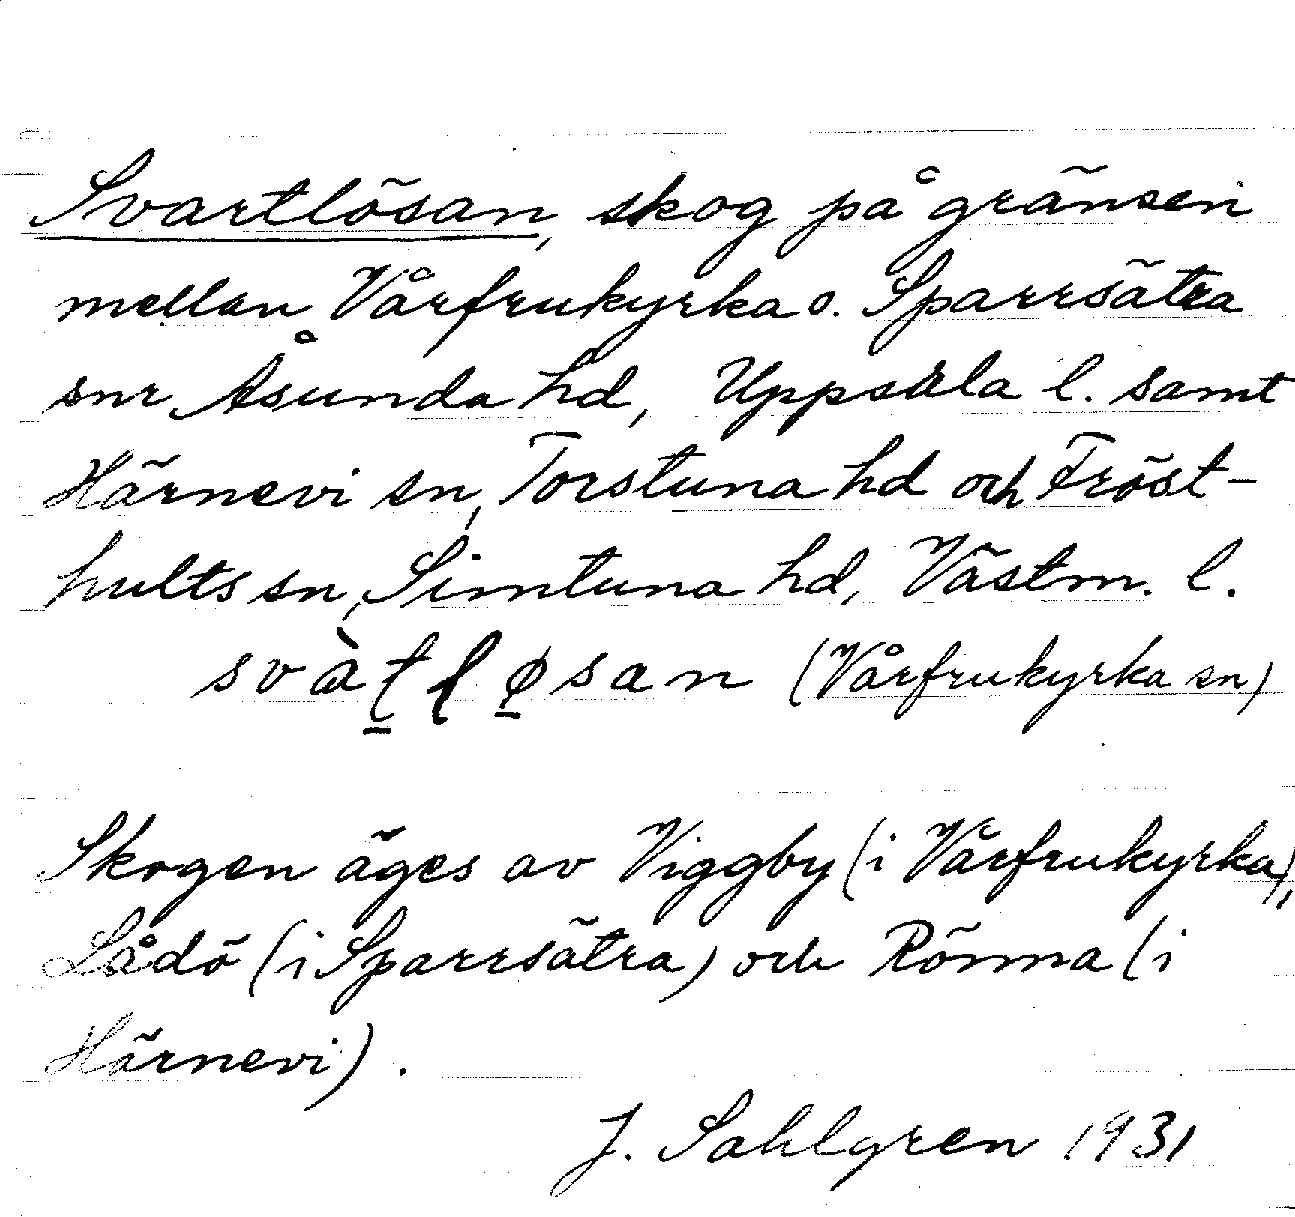 Svartlösan, skog på gränsen
mellan Vårfrukyrka o. Sparrsätra
snr Åsunda hd, Uppsala l. samt
Härnevi sn, Torstuna hd och Fröst-
hults sn, Simtuna hd, Västm. l.
svàṯlø̱san (Vårfrukyrka sn)
Skogen äges av Viggby (i Vårfrukyrka),
Lådö (i Sparrsätra) och Rönna (i
Härnevi).
J. Sahlgren 1931